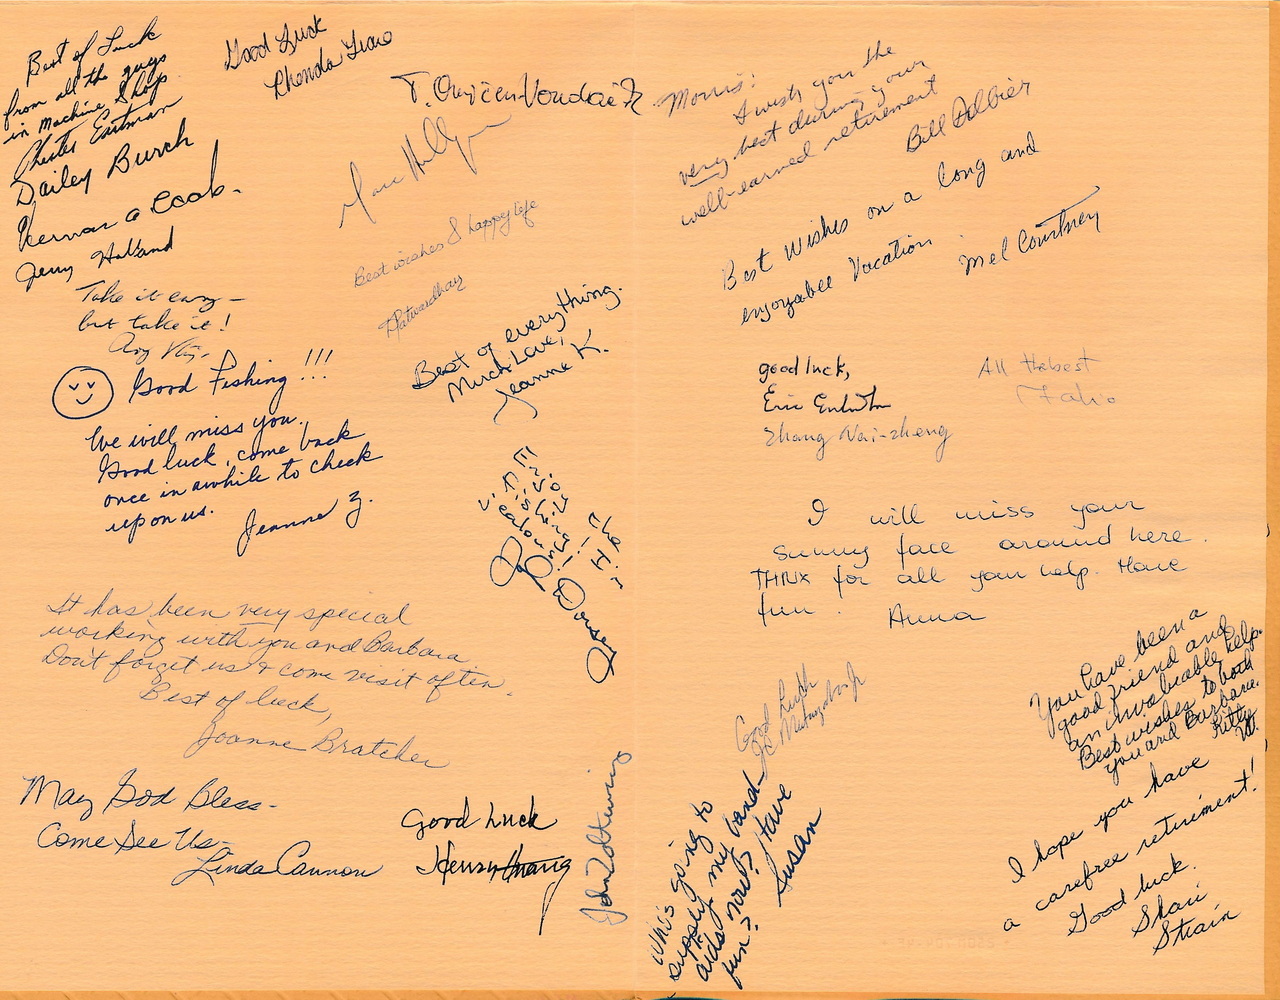 Best of Luck
from all the guys
in Machine Shop
Chester Eastman
Dailey Burch
Herman a Cook
Jerry
Take it easy –
but take it!
Good Fishing!!!
We will miss you.
Good luck, come back
once in awhile to check
upon us.
Jeanne Z.
It has been very special
working with you and Barbara
Don't forget us & come visit often.
Best of luck,
Joanne Bratcher
May God Bless-
Come See Us-
Linda Cannon
Good Luck
Rhonda
Best wishes & happy life
Patwardhan
Best of everything.
Much Love,
Jeanne K.
Enjoy the
Fishing!
Good Luck
Henry
John
Morris:
I wish you the
very best during your
well-earned retirement
Bill
Best Wishes on a long and
enjoyable Vacation.
Mel Courtney
good luck,
Eric
Zhang Nai-zheng
All the best
I will miss your
sunny face around here.
THNX for all your help. Have
fun. Anna
You have been a
good friend and
an invaluable help.
Best wishes to both
you and Barbara.
Kitty
Good Luck
Who's going to
supply my band-
aids now? Have
fun? Susan
I hope you have
a carefree retirement!
Good luck.
Shari
Strain